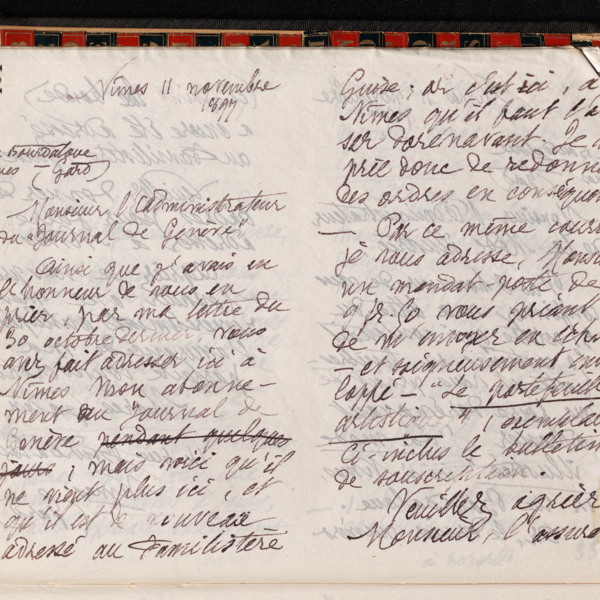 Nîmes 11 novembre
1897
Bourdaloue
(Gard)
Monsieur l'administrateur
du "Journal de Genève"
Ainsi que j'avais eu
l'honneur de vous en
prier, par ma lettre du
30 octobre dernier, vous
avez fait adresser ici à
Nîmes mon abonne-
ment au Journal de
Genève pendant quelques
jours ; mais voici qu'il
ne vient plus ici, et
qu'il est de nouveau
adressé au Familistère
Guise ; or c'est ici, à
Nîmes qu'il faut l'a
ser dorénavant. Je
prie donc de redonn
des ordres en conséquen
— Par ce même courr
je vous adresse, Mons
un mandat-poste de
9 fr. 50 vous priant
de m'envoyer en
— et soigneusement en
loppé — "Le portefeuil
artistique",
Ci-inclus le bulletin
de souscription.
Veuillez agréer
Monsieur, l'assura